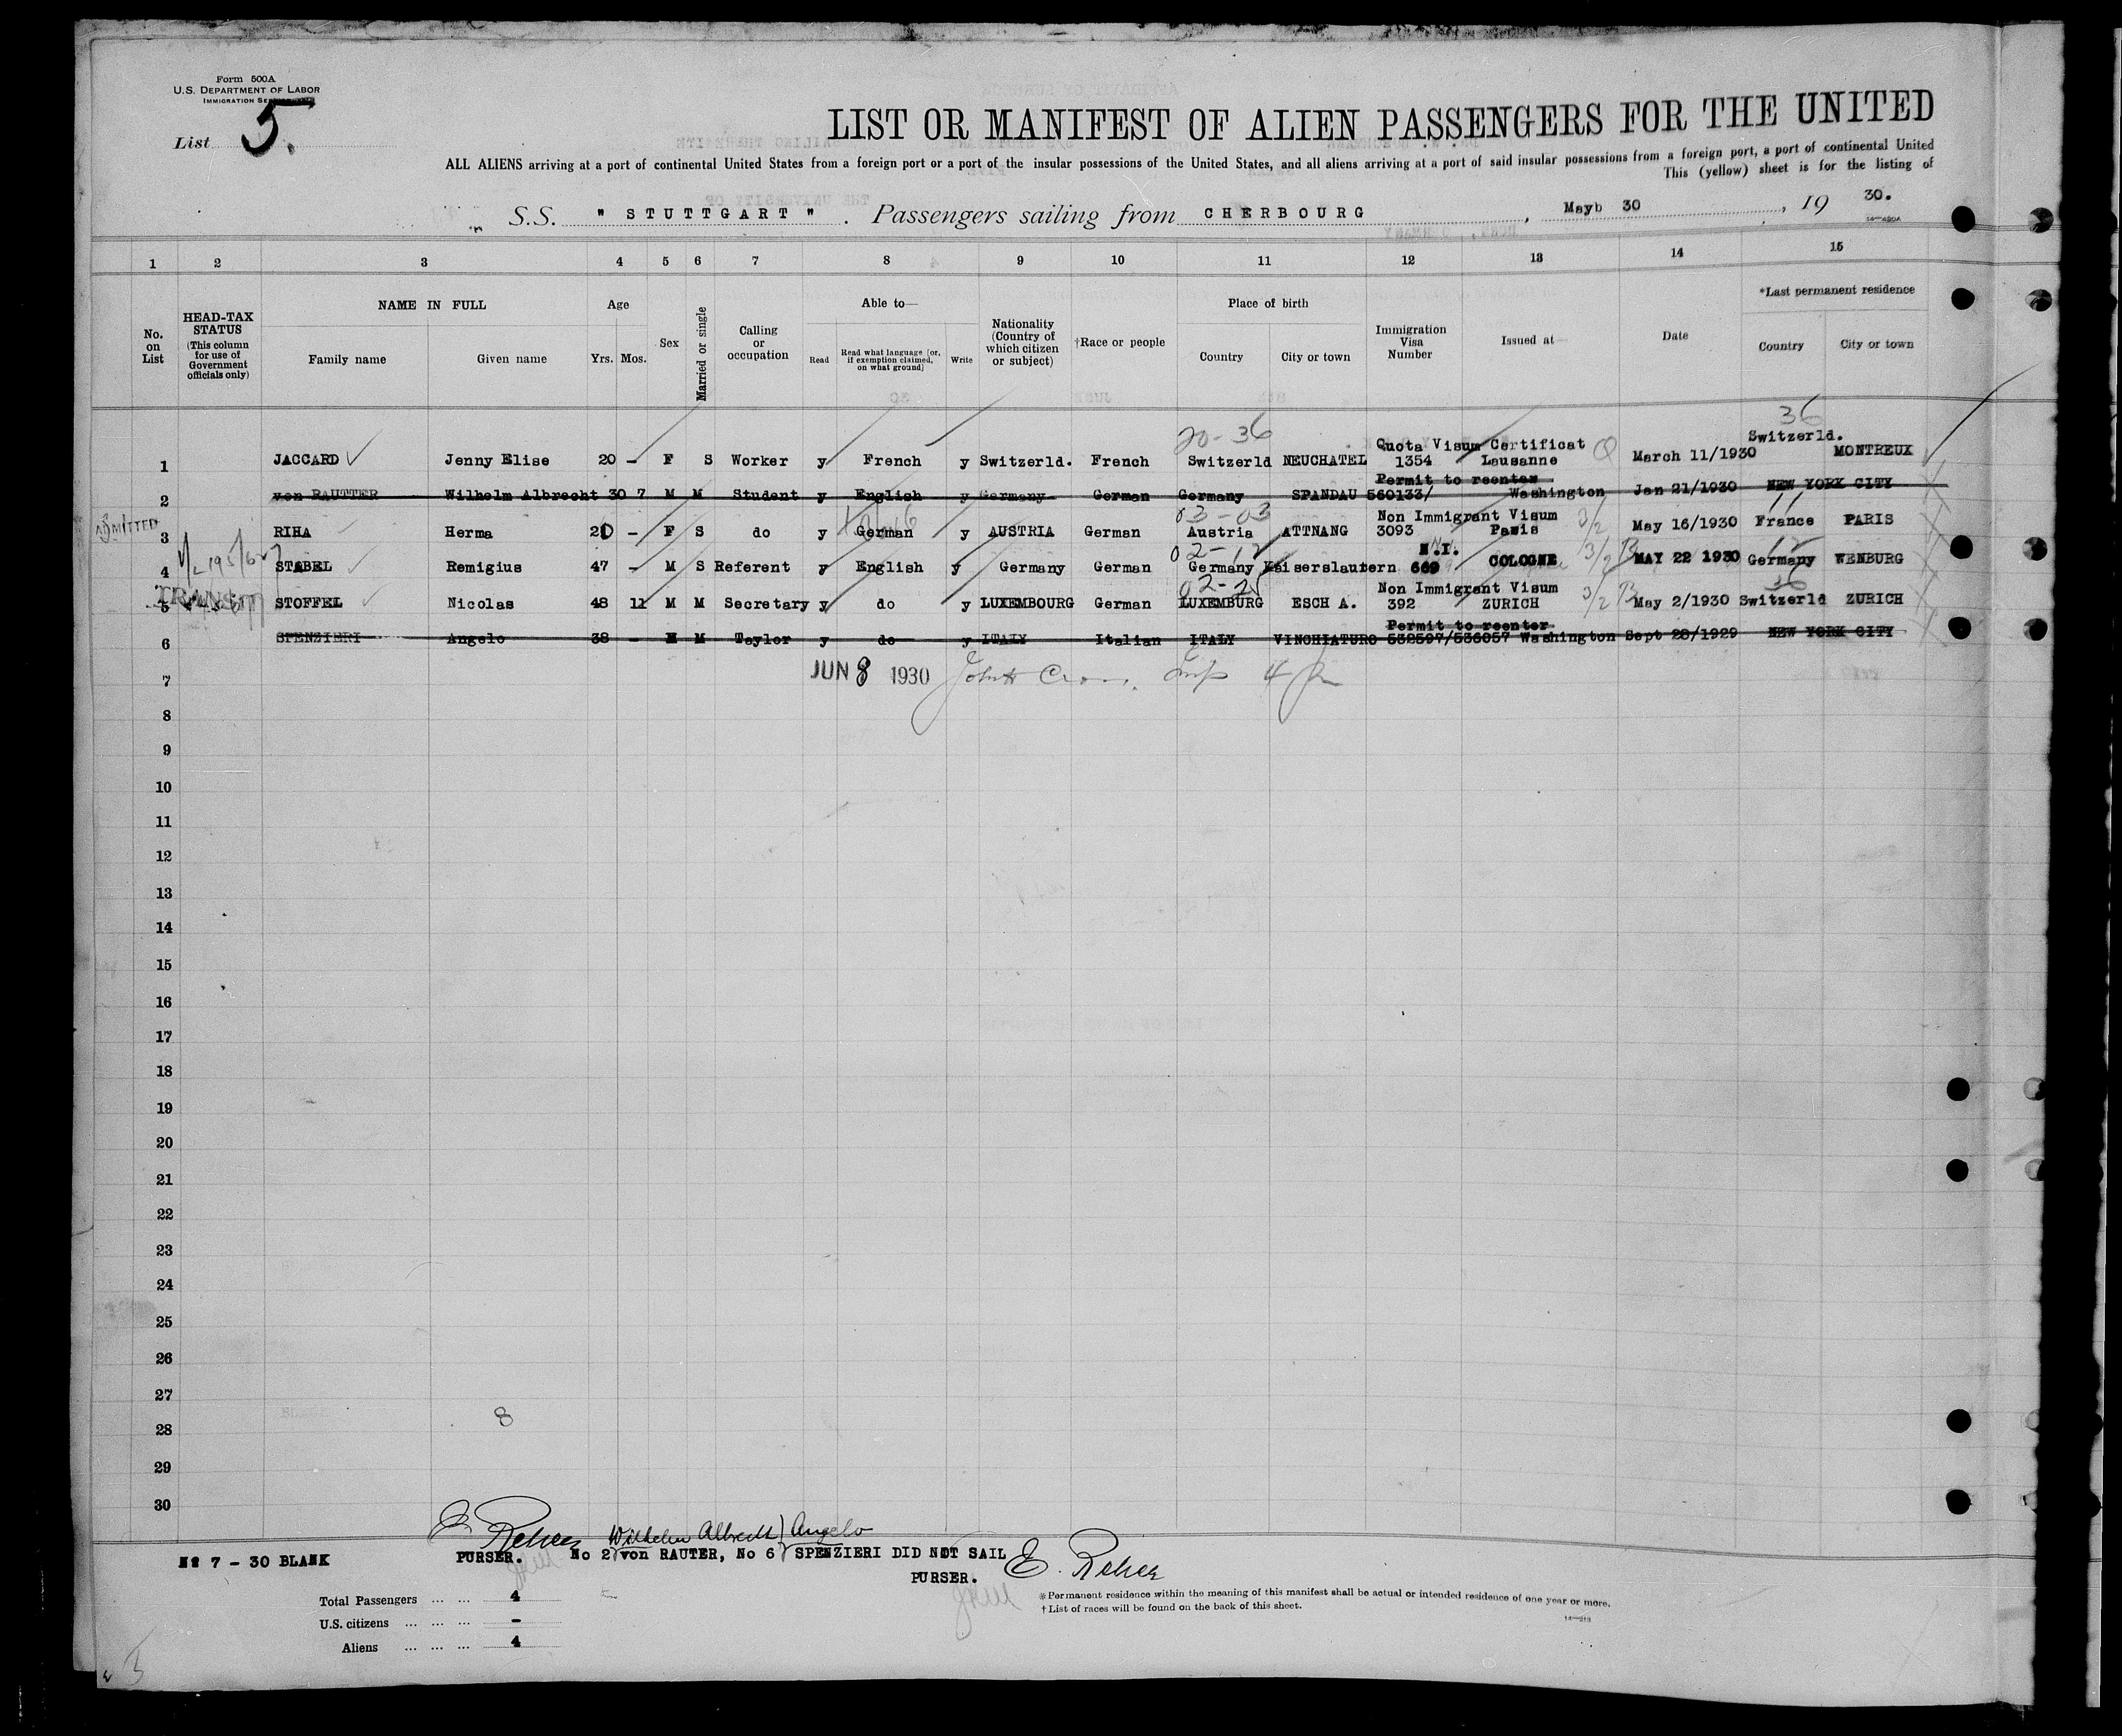 Form 500A
U.S. DEPARTMENT OF LABOR
IMMIGRATION
List 5.
LIST OR MANIFEST OF ALIEN PASSENGERS FOR THE UNITED
ALL ALIENS arriving at a port of continental United States from a foreign port or a port of the insular possessions of the United States, and all aliens arriving at a port of said insular possessions from a foreign port, a port of continental United
This (yellow) sheet is for the listing of
S.S. " STUTTGART " . Passengers sailing from CHERBOURG , Mayb 30 , 19 30.
1 2 3 4 5 6 7 8 9 10 11 12 13 14 15
No. on List
HEAD-TAX STATUS (This column for use of Government officials only)
NAME IN FULL
Family name Given name
Age
Yrs. Mos.
Sex
Married or single
Calling or occupation
Able to—
Read
Read what language [or, if exemption claimed, on what ground]
Write
Nationality (Country of which citizen or subject)
†Race or people
Place of birth
Country City or town
Immigration Visa Number
Issued at
Date
*Last permanent residence
Country City or town
20-36 36
Quota Visum Certificat Q Switzerld.
1 JACCARD Jenny Elise 20 - F S Worker y French y Switzerld. French Switzerld NEUCHATEL 1354 Lausanne March 11/1930 MONTREUX
Permit to reenter
2 von RAUTTER Wilhelm Albrecht 30 7 M M Student y English y Germany German Germany SPANDAU 560133/ Washington Jan 21/1930 NEW YORK CITY
03-03 Non Immigrant Visum 3/2 11
ADMITTED 3 RIHA Herma 20 - F S do y German y AUSTRIA German Austria ATTNANG 3093 Paris May 16/1930 France PARIS
02-12 N.I. 3/2 B 12
4 STABEL Remigius 47 - M S Referent y English y Germany German Germany Kaiserslautern 669 COLOGNE MAY 22 1930 Germany WENBURG
02-25 Non Immigrant Visum 3/2 B 36
TRANSIT 5 STOFFEL Nicolas 48 11 M M Secretary y do y LUXEMBOURG German LUXEMBURG ESCH A. 392 ZURICH May 2/1930 Switzerld ZURICH
Permit to reenter
6 SPENZIERI Angelo 38 - M M Taylor y do y ITALY Italian ITALY VINCHIATURO 532597/536057 Washington Sept 28/1929 NEW YORK CITY
7 JUN 8 1930
8
9
10
11
12
13
14
15
16
17
18
19
20
21
22
23
24
25
26
27
8
28
29
30
Wilhelm Albrecht Angelo
No 7 - 30 BLANK PURSER. No 2 von RAUTER, No 6 SPENZIERI DID NOT SAIL
PURSER.
Total Passengers ... ... 4
U.S. citizens ... ... ... -
Aliens ... ... ... 4
*Permanent residence within the meaning of this manifest shall be actual or intended residence of one year or more.
†List of races will be found on the back of this sheet.